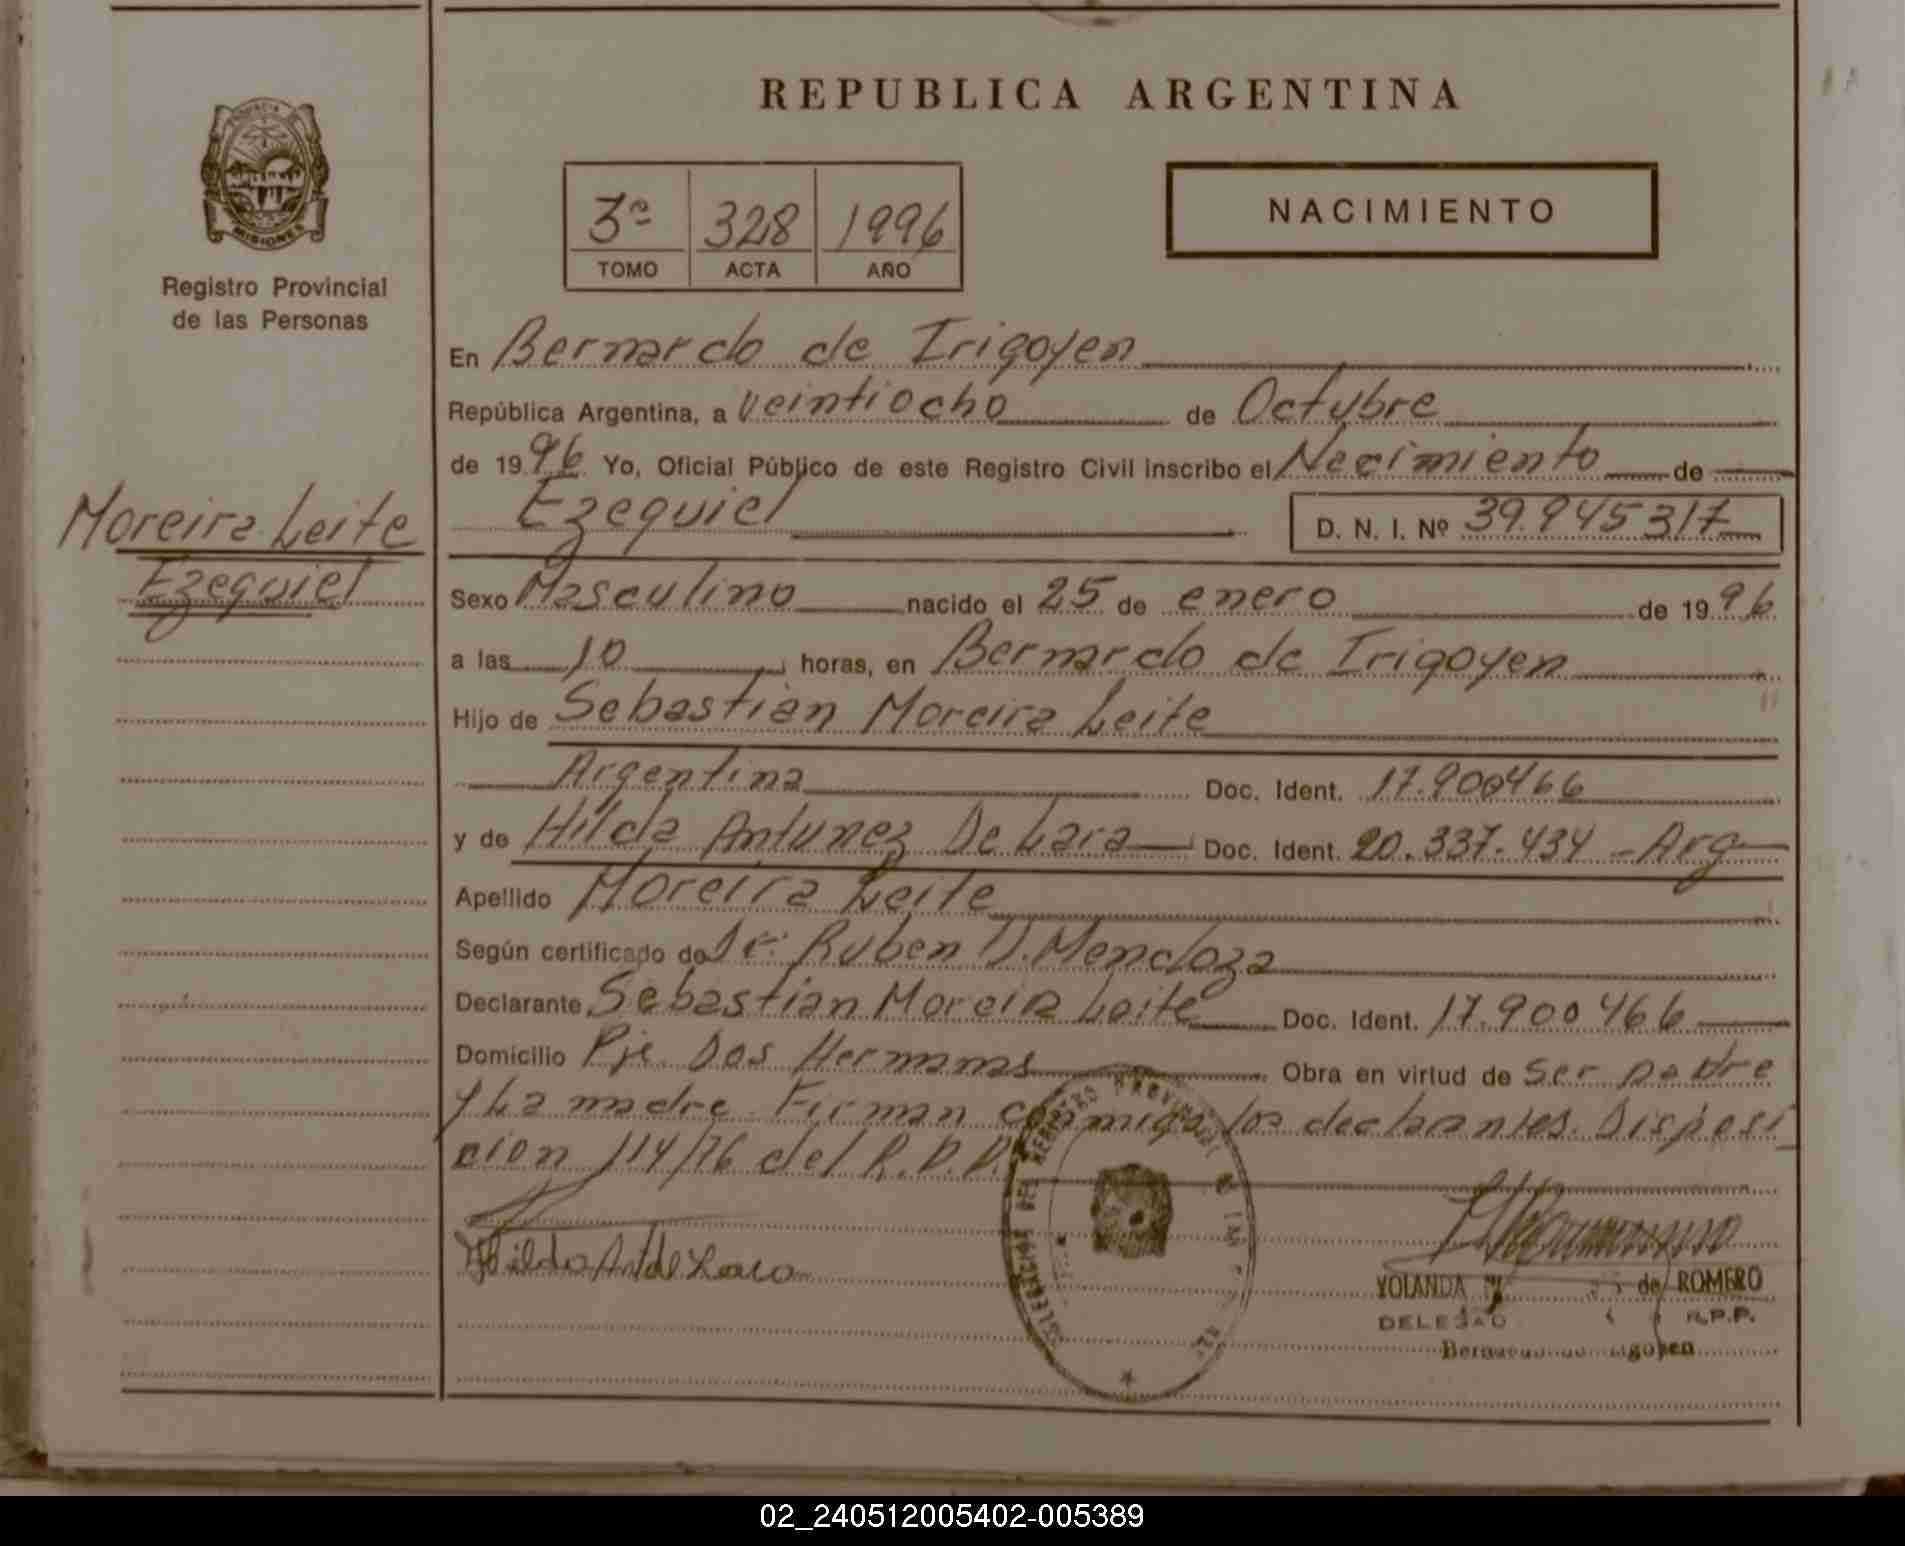 REPUBLICA ARGENTINA
PROVINCIA
MISIONES
Registro Provincial
de las Personas
3º 328 1996
TOMO ACTA AÑO
NACIMIENTO
En Bernardo de Irigoyen
República Argentina, a veintiocho de Octubre
de 1996 Yo, Oficial Público de este Registro Civil inscribo el Nacimiento de
Ezequiel D. N. I. Nº 39.945317
Moreira Leite
Ezequiel
Sexo Masculino nacido el 25 de enero de 1996
a las 10 horas, en Bernardo de Irigoyen
Hijo de Sebastian Moreira Leite
Argentina Doc. Ident. 17.900466
y de Hilda Antunez De Lara Doc. Ident. 20.337.434 - Arg
Apellido Moreira Leite
Según certificado de Dr. Ruben D. Mendoza
Declarante Sebastian Moreira Leite Doc. Ident. 17.900466
Domicilio Pje. Dos Hermanas Obra en virtud de ser padre
y La madre. Firman conmigo los declarantes. Disposi
cion 114/76 del R.P.P.
Hilda Ant de Lara
YOLANDA de ROMERO
R.P.P.
02_240512005402-005389